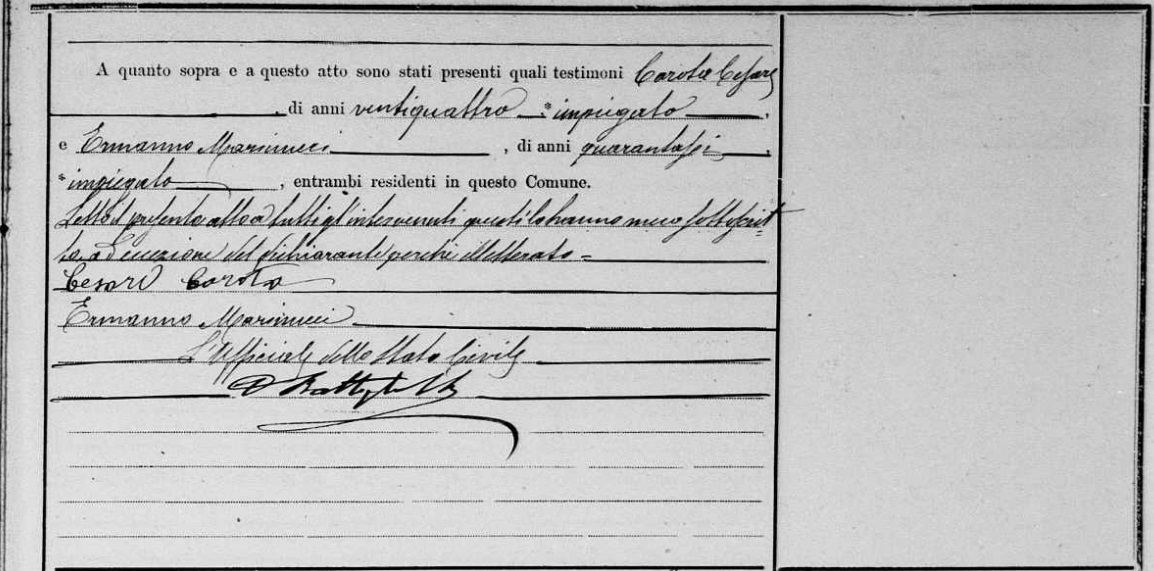 A quanto sopra e a questo atto sono stati presenti quali testimoni Carota Cesare
, di anni ventiquattro * impiegato ,
e Ermanno Marinucci , di anni quarantasei ,
* impiegato , entrambi residenti in questo Comune.
Letto il presente atto a tutti gl'intervenuti questi lo hanno meco sottoscrit-
to, ad eccezione del dichiarante perchè illetterato =
Cesare Carota
Ermanno Marinucci
L'Ufficiale dello Stato Civile